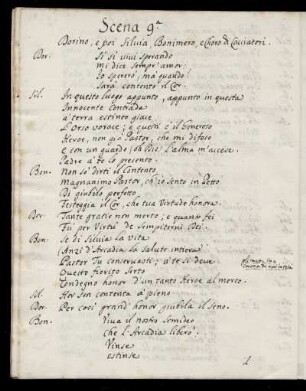 Scena 9.a
Dorino, e poi Silvia, Bonimero, e Choro di Cacciatori.
Dor. Si si vivi sperando
mi dice sempr' amor.
Io spererò, ma quando
Sarà contento il Cor.
Sil. In questo luogo appunto, appunto in questa
Innocente Contrada
a terra estinto giace
L'Orso vorace; e questi è il Generoso
Heroe, non già Pastor, che mi difese
E con un guardo (oh Dio) l'alma m'accese.
Padre a te lo presento.
Bon. Non so dirti il Contento
Magnanimo Pastor, ch'io sento in Petto
Di giubilo perfetto
Festeggia il Cor, che tua Virtude honora.
Dor. Tante gratie non merto; e quanto fei
Fu per Virtù de Sempiterni Dei.
Bon. Se di Silvia la vita
Anzi d'Arcadia la Salute intiera
Pastor Tu conservasti; a te si deve
Questo fiorito Serto
Condegno honor d'un tanto Heroe al merto.
Sil. Hor son contenta à pieno
Dor. Per così grand' honor giubila il Seno.
Bon. Viva il nostro Semideo
che l'Arcadia liberò.
Vinse
estinse